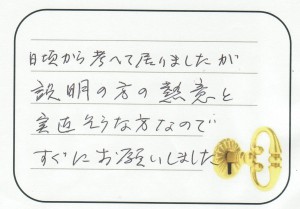 日頃から考へて居りましたが
説明の方の熱意と
実直そうな方なので
すぐにお願いしました